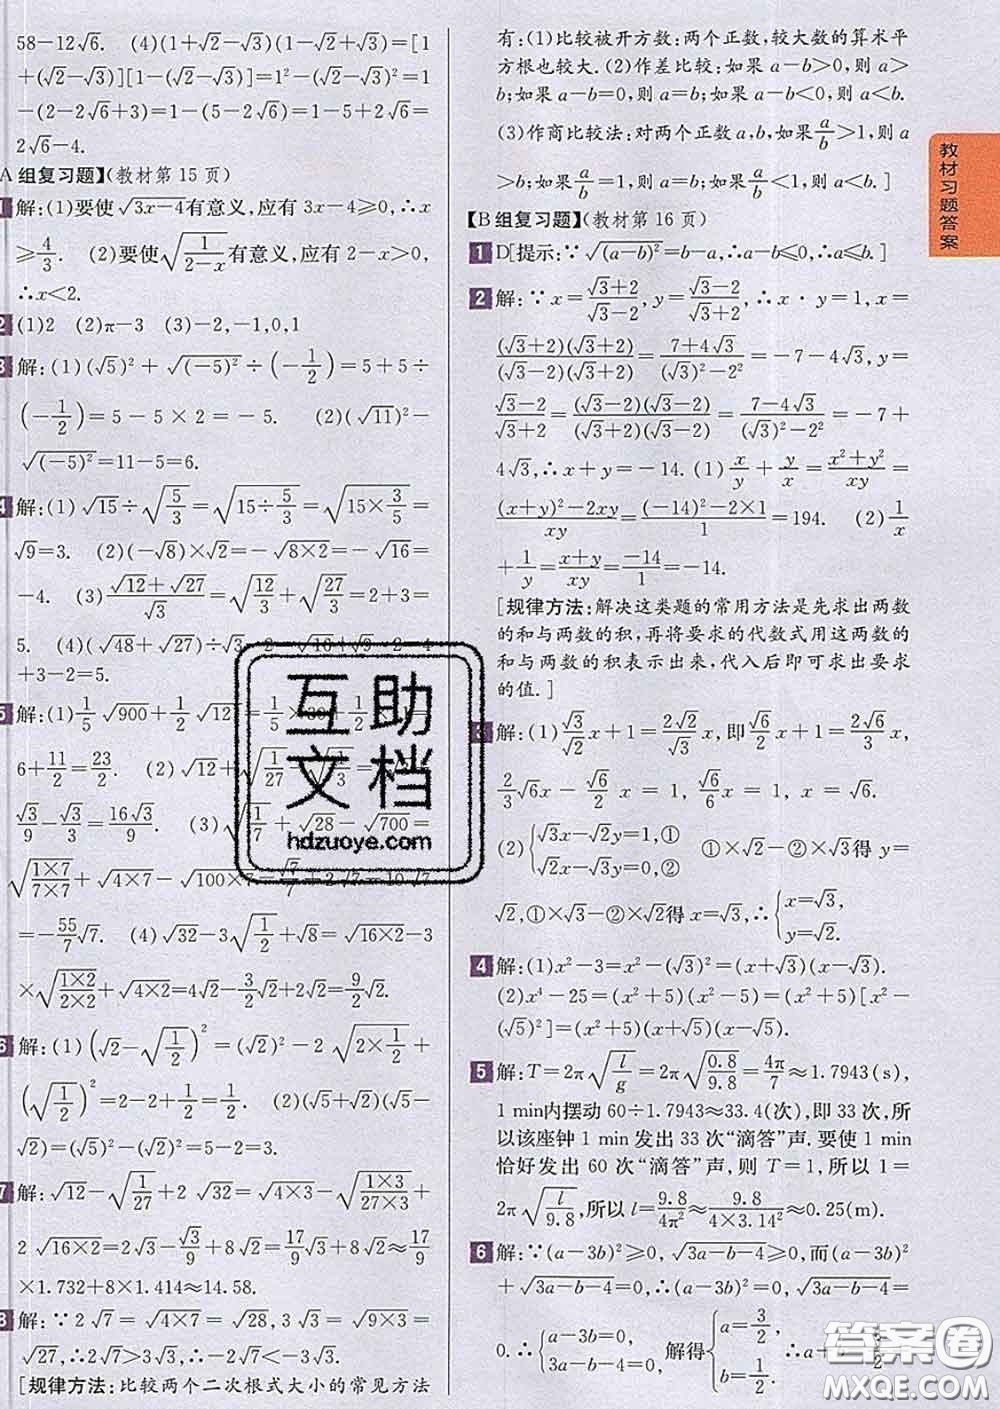 58-12√6. (4)(1+√2-√3)(1-√2+√3)=[1
+(√2-√3)][1-(√2-√3)]=1²-(√2-√3)²=1
-(2-2√6+3)=1-(5-2√6)=1-5+2√6=
2√6-4.
A组复习题】(教材第15页)
1 解:(1)要使√(3x-4)有意义,应有3x-4≥0,∴x
≥4/3. (2)要使√(1/(2-x))有意义,应有2-x>0,
∴x<2.
2 (1)2 (2)π-3 (3)-2,-1,0,1
3 解:(1)(√5)²+√((-5)²)÷(-1/2)=5+5÷
(-1/2)=5-5×2=-5. (2)(√11)²-
√((-5)²)=11-5=6.
4 解:(1)√15÷√(5/3)=√(15÷5/3)=√(15×3/5)=
√9=3. (2)(-√8)×√2=-√(8×2)=-√16=
-4. (3)(√12+√27)/√3=√(12/3)+√(27/3)=2+3=
5. (4)(√48+√27)÷√3
+3-2=5.
5 解:(1)1/5√900+1/2√12
6+11/2=23/2. (2)√12+√(1/27)
√3/9-√3/3=16√3/9. (3)√(1/7)+√28-√700=
√((1×7)/(7×7))+√(4×7)-√(100×7)=√7/7+2√7-10√7
=-55/7√7. (4)√32-3√(1/2)+√8=√(16×2)-3
×√((1×2)/(2×2))+√(4×2)=4√2-3√2/2+2√2=9/2√2.
6 解:(1)(√2-√(1/2))²=(√2)²-2√(2×1/2)+
(√(1/2))²=2-2+1/2=1/2. (2)(√5+√2)(√5-
√2)=(√5)²-(√2)²=5-2=3.
7 解:√12-√(1/27)+2√32=√(4×3)-√((1×3)/(27×3))+
2√(16×2)=2√3-√3/9+8√2=17/9√3+8√2≈17/9
×1.732+8×1.414≈14.58.
8 解:∵2√7=√(4×7)=√28,3√3=√(9×3)=
√27,∴2√7>3√3,∴-2√7<-3√3.
[规律方法:比较两个二次根式大小的常见方法
有:(1)比较被开方数:两个正数,较大数的算术平
方根也较大.(2)作差比较:如果a-b>0,则a>
b;如果a-b=0,则a=b;如果a-b<0,则a<b.
(3)作商比较法:对两个正数a,b,如果a/b>1,则a
>b;如果a/b=1,则a=b;如果a/b<1,则a<b.]
【B组复习题】(教材第16页)
1 D[提示:∵√((a-b)²)=b-a,∴a-b≤0,∴a≤b.]
2 解:∵x=(√3+2)/(√3-2),y=(√3-2)/(√3+2),∴x·y=1,x=
((√3+2)(√3+2))/((√3-2)(√3+2))=(7+4√3)/((√3)²-2²)=-7-4√3,y=
(√3-2)/(√3+2)=((√3-2)(√3-2))/((√3+2)(√3-2))=(7-4√3)/((√3)²-2²)=-7+
4√3,∴x+y=-14. (1)x/y+y/x=(x²+y²)/xy=
((x+y)²-2xy)/xy=((-14)²-2×1)/1=194. (2)1/x
+1/y=(x+y)/xy=-14/1=-14.
[规律方法:解决这类题的常用方法是先求出两数
的和与两数的积,再将要求的代数式用这两数的
和与两数的积表示出来,代入后即可求出要求
的值.]
3 解:(1)√3/√2x+1=2√2/√3x,即√6/2x+1=2√6/3x,
2/3√6x-√6/2x=1,√6/6x=1,x=√6.
(2){√3x-√2y=1,① ①×√2-②×√3得y=
√2x-√3y=0.②
√2,①×√3-②×√2得x=√3,∴{x=√3,
y=√2.
4 解:(1)x²-3=x²-(√3)²=(x+√3)(x-√3).
(2)x⁴-25=(x²+5)(x²-5)=(x²+5)[x²-
(√5)²]=(x²+5)(x+√5)(x-√5).
5 解:T=2π√(l/g)=2π√(0.8/9.8)=4π/7≈1.7943(s),
1 min内摆动60÷1.7943≈33.4(次),即33次,所
以该座钟1 min发出33次“滴答”声.要使1 min
恰好发出60次“滴答”声,则T=1,所以1=
2π√(l/9.8),所以l=9.8/4π²≈9.8/(4×3.14²)≈0.25(m).
6 解:∵(a-3b)²≥0,√(3a-b-4)≥0,而(a-3b)²
+√(3a-b-4)=0,∴(a-3b)²=0,√(3a-b-4)=
0.∴{a-3b=0, 解得{a=3/2,
3a-b-4=0. b=1/2.
教材习题答案
互助
文档
hdzuoye.com
答案圈
MXQE.COM